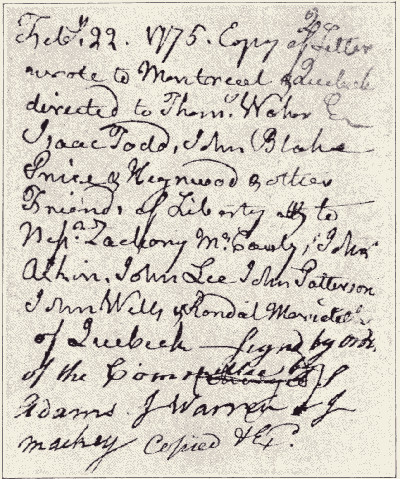 Feby. 22. 1775. Copy of Letter
wrote to Montreal & Quebeck
directed to Thoms Waker
Isaac Todd, John Blake
Price & Heynwood & other
Friends of Liberty to
Zachary McCauly, John
Atkin, John Lee John Patterson
John Wells & Randal
of Quebeck Signd by
of the Committee by S
Adams J Warren & J
mackey Copied & Ex.d